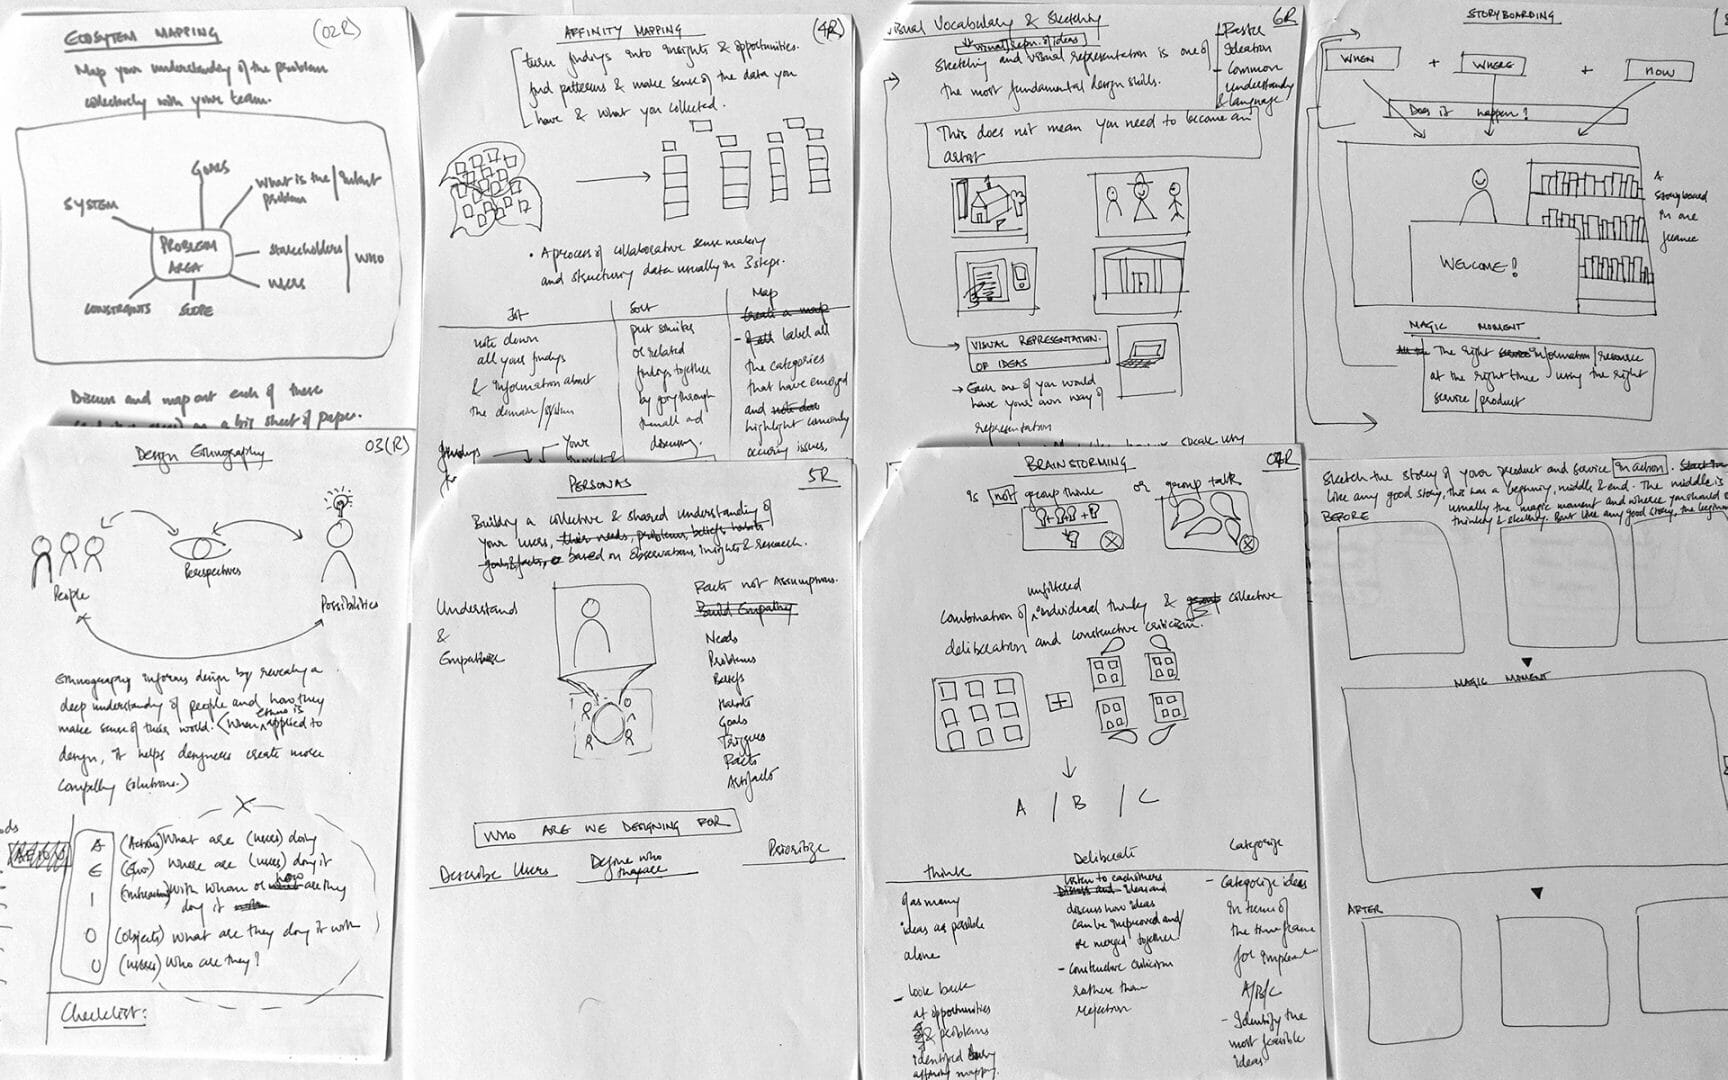 ECOSYTEM MAPPING
(02R)
Map your understanding of the problem
collectively with your team.
GOALS
What is the / Intent
problem
SYSTEM
PROBLEM
AREA
stakeholders
WHO
users
CONSTRAINTS
SCOPE
Discuss and map out each of these
on a big sheet of paper.
AFFINITY MAPPING
(4R)
turn findings into insights & opportunities.
find patterns & make sense of the data you
have & what you collected.
• A process of collaborative sense making
and structuring data usually in 3 steps.
List
note down
all your findings
& information about
the domain/system
Sort
put similar
or related
findings together
by going through
them all and
discussing.
Map
Create a map
- label all
the categories
that have emerged
and note down
highlight commonly
occuring issues,
Visual Vocabulary & Sketching
6R
visual repn. of ideas
Sketching and visual representation is one of
the most fundamental design skills.
Ideation
- Common
understanding
& language
This does not mean you need to become an
artist
VISUAL REPRESENTATION
OF IDEAS
→ Each one of you would
have your own way of
representation
STORYBOARDING
WHEN + WHERE + HOW
Does it happen?
A
storyboard
in one
frame
WELCOME!
MAGIC MOMENT
The right information/resource
at the right time using the right
service/product
Design Ethnography
03(R)
People
Perspectives
Possibilities
Ethnography informs design by revealing a
deep understanding of people and how they
make sense of their world. (When ethno is applied to
design, it helps designers create more
compelling solutions.)
A (Actions) What are (users) doing
E (Env) Where are (users) doing it
I (Interaction) with whom or how are they
doing it
O (objects) What are they doing it with
U (users) Who are they?
Checklist:
PERSONAS
5R
Building a collective & shared understanding of
your users, their needs, problems, beliefs, habits
goals & facts, based on observations, insights & research.
Understand
&
Empathise
Facts not Assumptions.
Build Empathy
Needs
Problems
Beliefs
Habits
Goals
Triggers
Facts
Artifacts
WHO ARE WE DESIGNING FOR
Describe Users
Define who
Prioritize
BRAINSTORMING
07R
is not group think or group talk
unfiltered
Combination of individual thinking & group collective
deliberation and constructive criticism.
A / B / C
think
as many
ideas as possible
alone
- look back
at opportunities
& problems
identified
affinity mapping.
Deliberate
listen to eachothers
Discuss and ideas and
discuss how ideas
can be improved and/
or merged together
- constructive criticism
rather than
rejection
Categorize
- Categorize ideas
in terms of
the time frame
for implement
A/B/C
- Identify the
most feasible
ideas
Sketch the story of your product and service in action.
Like any good story, this has a beginning, middle & end. The middle is
usually the magic moment and where you should
thinking & sketching. But like any good story, the beginning
BEFORE
MAGIC MOMENT
AFTER